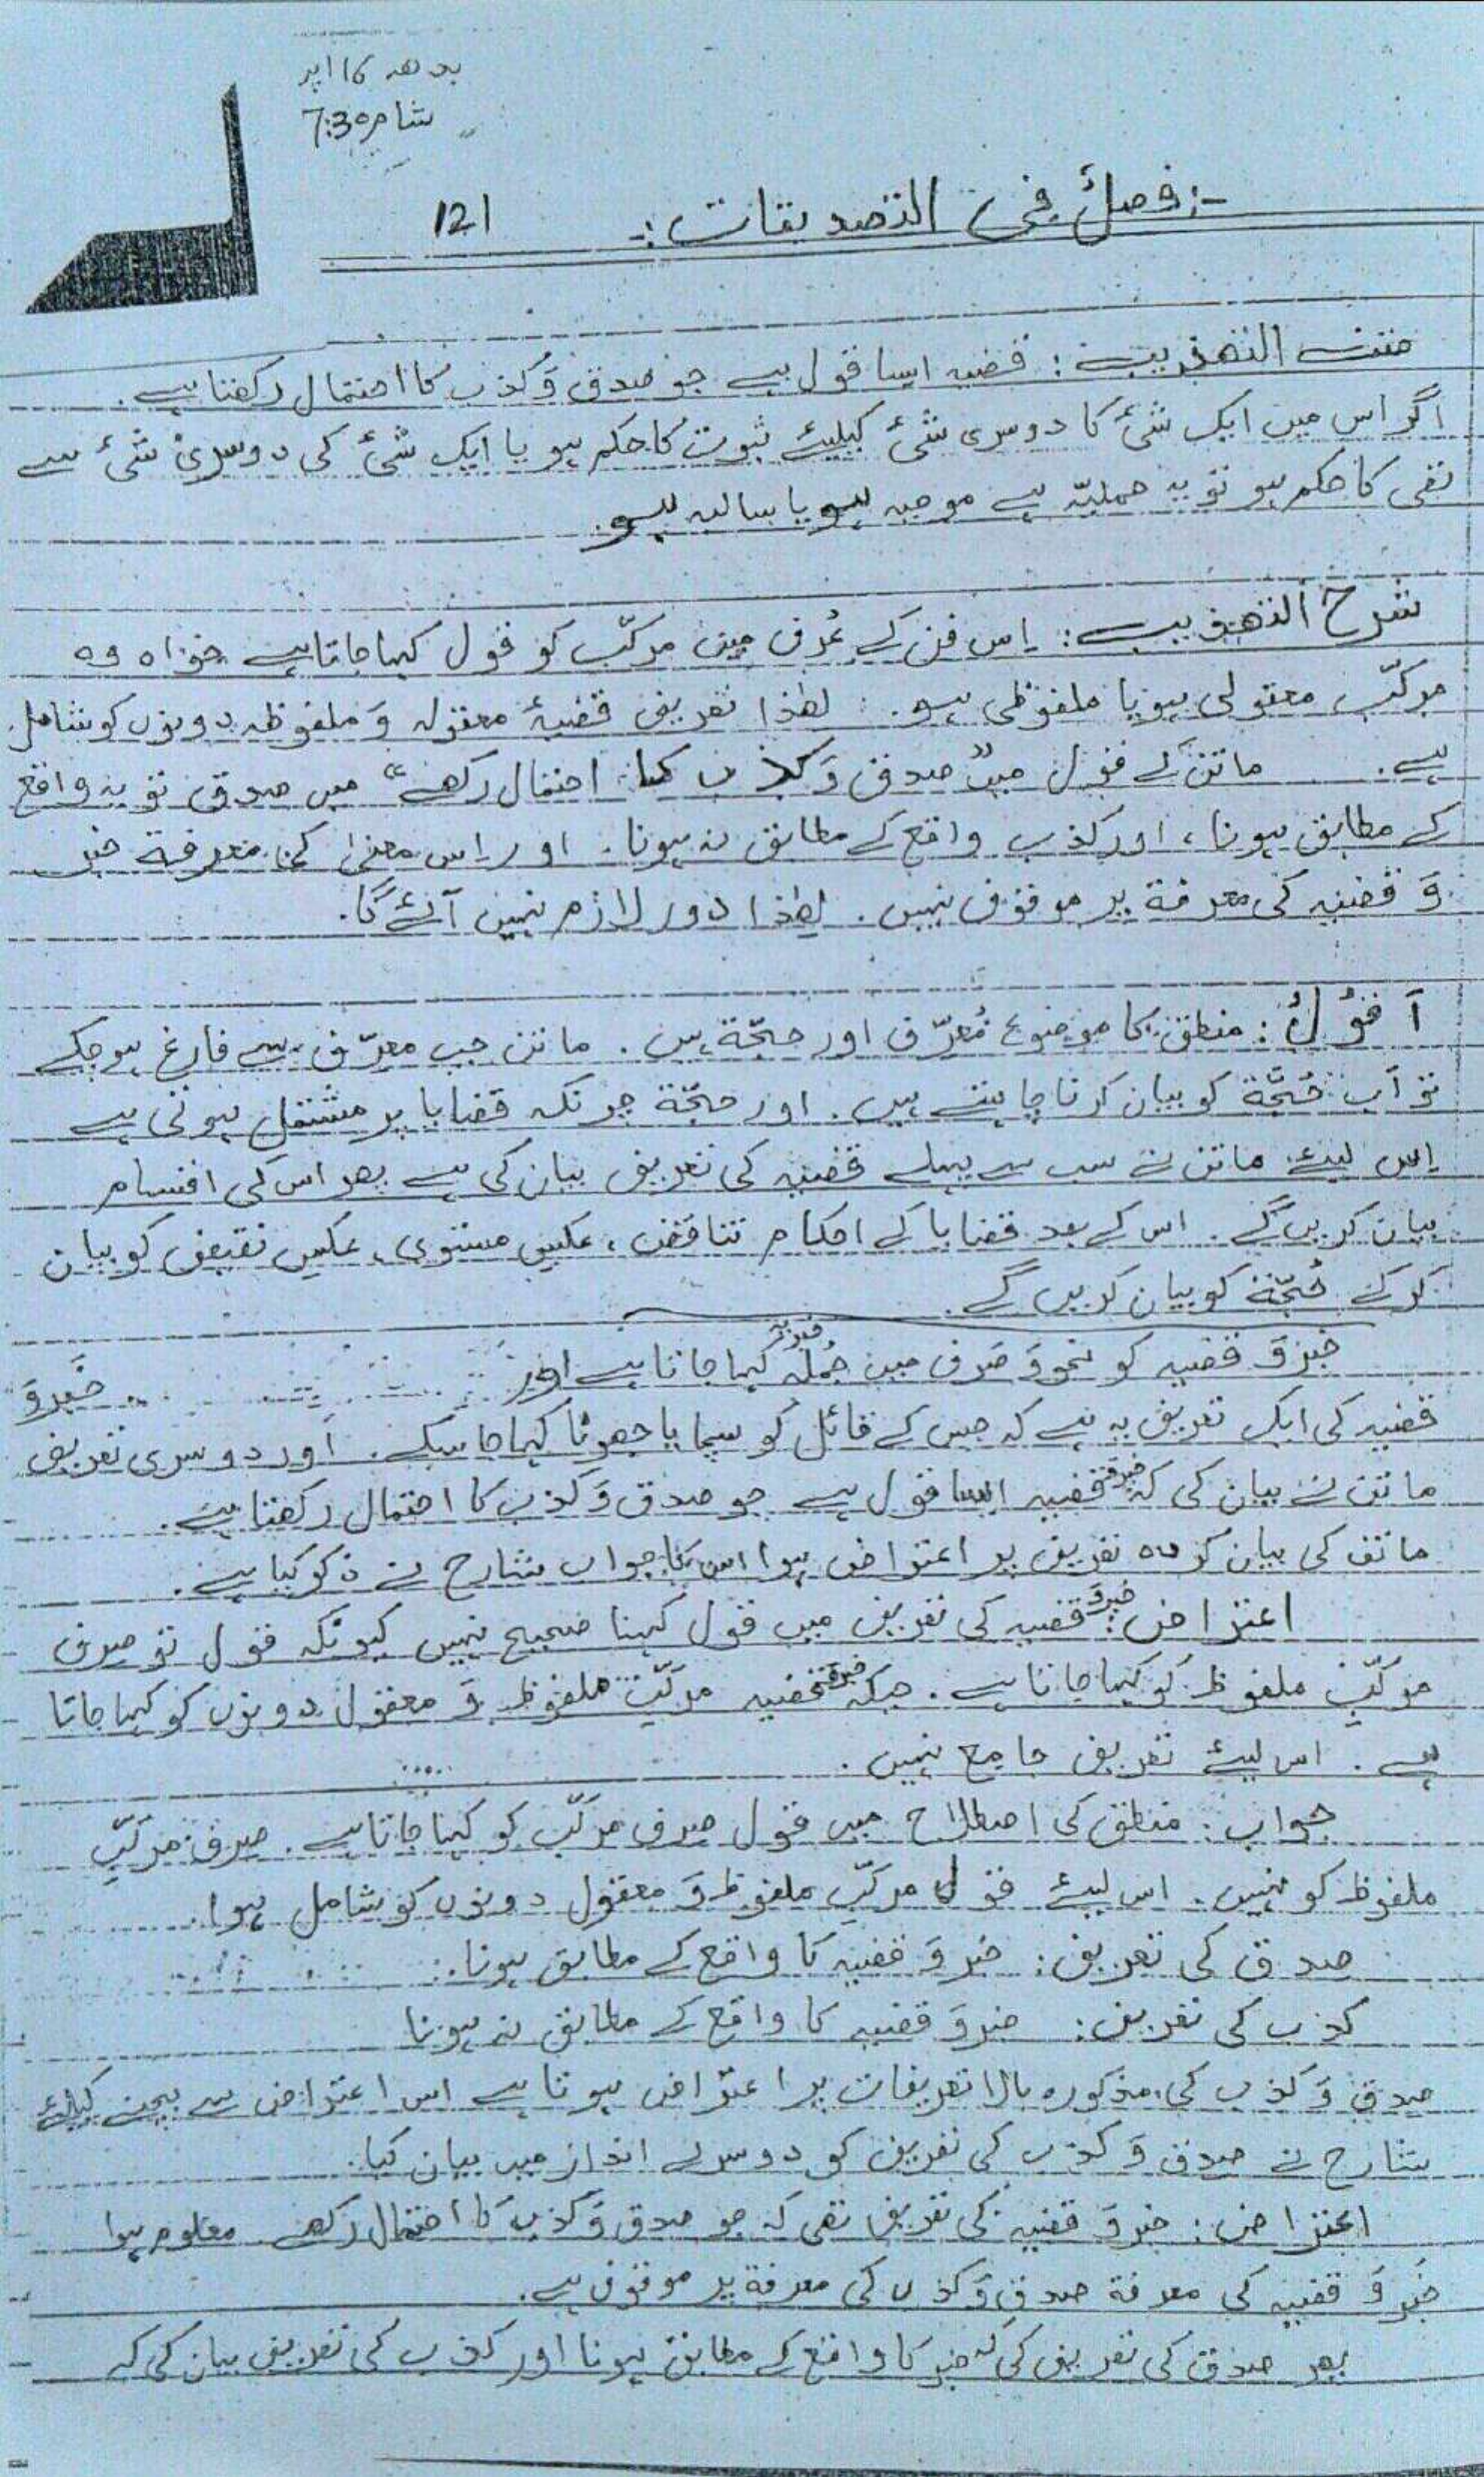 بدھ کا
شام 7:30
-: فصلٌ فی التصدیقات :-
121
متن التھذیب : قضیہ ایسا قول ہے جو صدق وَ کذب کا احتمال رکھتا ہے .
اگر اس میں ایک شئ کا دوسری شئ کیلیئے ثبوت کا حکم ہو یا ایک شئ کی دوسری شئ سے
نفی کا حکم ہو تو یہ حملیّہ ہے موجبہ ہو یا سالبہ ہو .
شرح التھذیب : اِس فن کے عُرف میں مرکّب کو قول کہا جاتا ہے خواہ وہ
مرکّب معقولی ہو یا ملفوظی ہو . لھٰذا تعریف قضیۂ معقولہ وَ ملفوظہ دونوں کو شامل
ہے . ماتن کے قول میں ”صدق وَ کذب کا احتمال رکھے“ میں صدق تو یہ واقع
کے مطابق ہونا ، اور کذب واقع کے مطابق نہ ہونا . اور اِس معنیٰ کی معرفۃ خبر
وَ قضیہ کی معرفۃ پر موقوف نہیں . لھٰذا دور لازم نہیں آئے گا .
اَقُوْلُ : منطق کا موضوع مُعرِّف اور حجّۃ ہیں . ماتن جب معرِّف سے فارغ ہو چکے
تو اَب حُجَّۃ کو بیان کرنا چاہتے ہیں . اور حجّۃ چونکہ قضایا پر مشتمل ہوتی ہے
اِس لیئے ماتن نے سب سے پہلے قضیہ کی تعریف بیان کی ہے پھر اس کی اقسام
بیان کریں گے . اس کے بعد قضایا کے احکام تناقض ، عکسِ مستوی ، عکسِ نقیض کو بیان
کر کے حُجّۃ کو بیان کریں گے .
خبر وَ قضیہ کو نحو وَ صَرف میں جُملہ خبریہ کہا جاتا ہے اور خبر وَ
قضیہ کی ایک تعریف یہ ہے کہ جس کے قائل کو سچا یا جھوٹا کہا جا سکے . اور دوسری تعریف
ماتن نے بیان کی کہ خبر وَ قضیہ ایسا قول ہے جو صدق وَ کذب کا احتمال رکھتا ہے .
ماتن کی بیان کردہ تعریف پر اعتراض ہوا اس کا جواب شارح نے ذکر کیا ہے .
اعتراض : خبر وَ قضیہ کی تعریف میں قول کہنا صحیح نہیں کیونکہ قول تو صرف
مرکّبِ ملفوظ کو کہا جاتا ہے . جبکہ خبر وَ قضیہ مرکّبِ ملفوظ وَ معقول دونوں کو کہا جاتا
ہے . اس لیئے تعریف جامع نہیں .
جواب : منطق کی اصطلاح میں قول صرف مرکّب کو کہا جاتا ہے . صرف مرکّبِ
ملفوظ کو نہیں . اس لیئے قول مرکّبِ ملفوظ وَ معقول دونوں کو شامل ہوا .
صدق کی تعریف : خبر وَ قضیہ کا واقع کے مطابق ہونا .
کذب کی تعریف : خبر وَ قضیہ کا واقع کے مطابق نہ ہونا
صدق وَ کذب کی مذکورہ بالا تعریفات پر اعتراض ہوتا ہے اس اعتراض سے بچنے کیلئے
شارح نے صدق وَ کذب کی تعریف کو دوسرے انداز میں بیان کیا .
اعتراض : خبر وَ قضیہ کی تعریف تھی کہ جو صدق وَ کذب کا احتمال رکھے معلوم ہوا
خبر وَ قضیہ کی معرفۃ صدق وَ کذب کی معرفۃ پر موقوف ہے .
پھر صدق کی تعریف کی کہ خبر کا واقع کے مطابق ہونا اور کذب کی تعریف بیان کی کہ